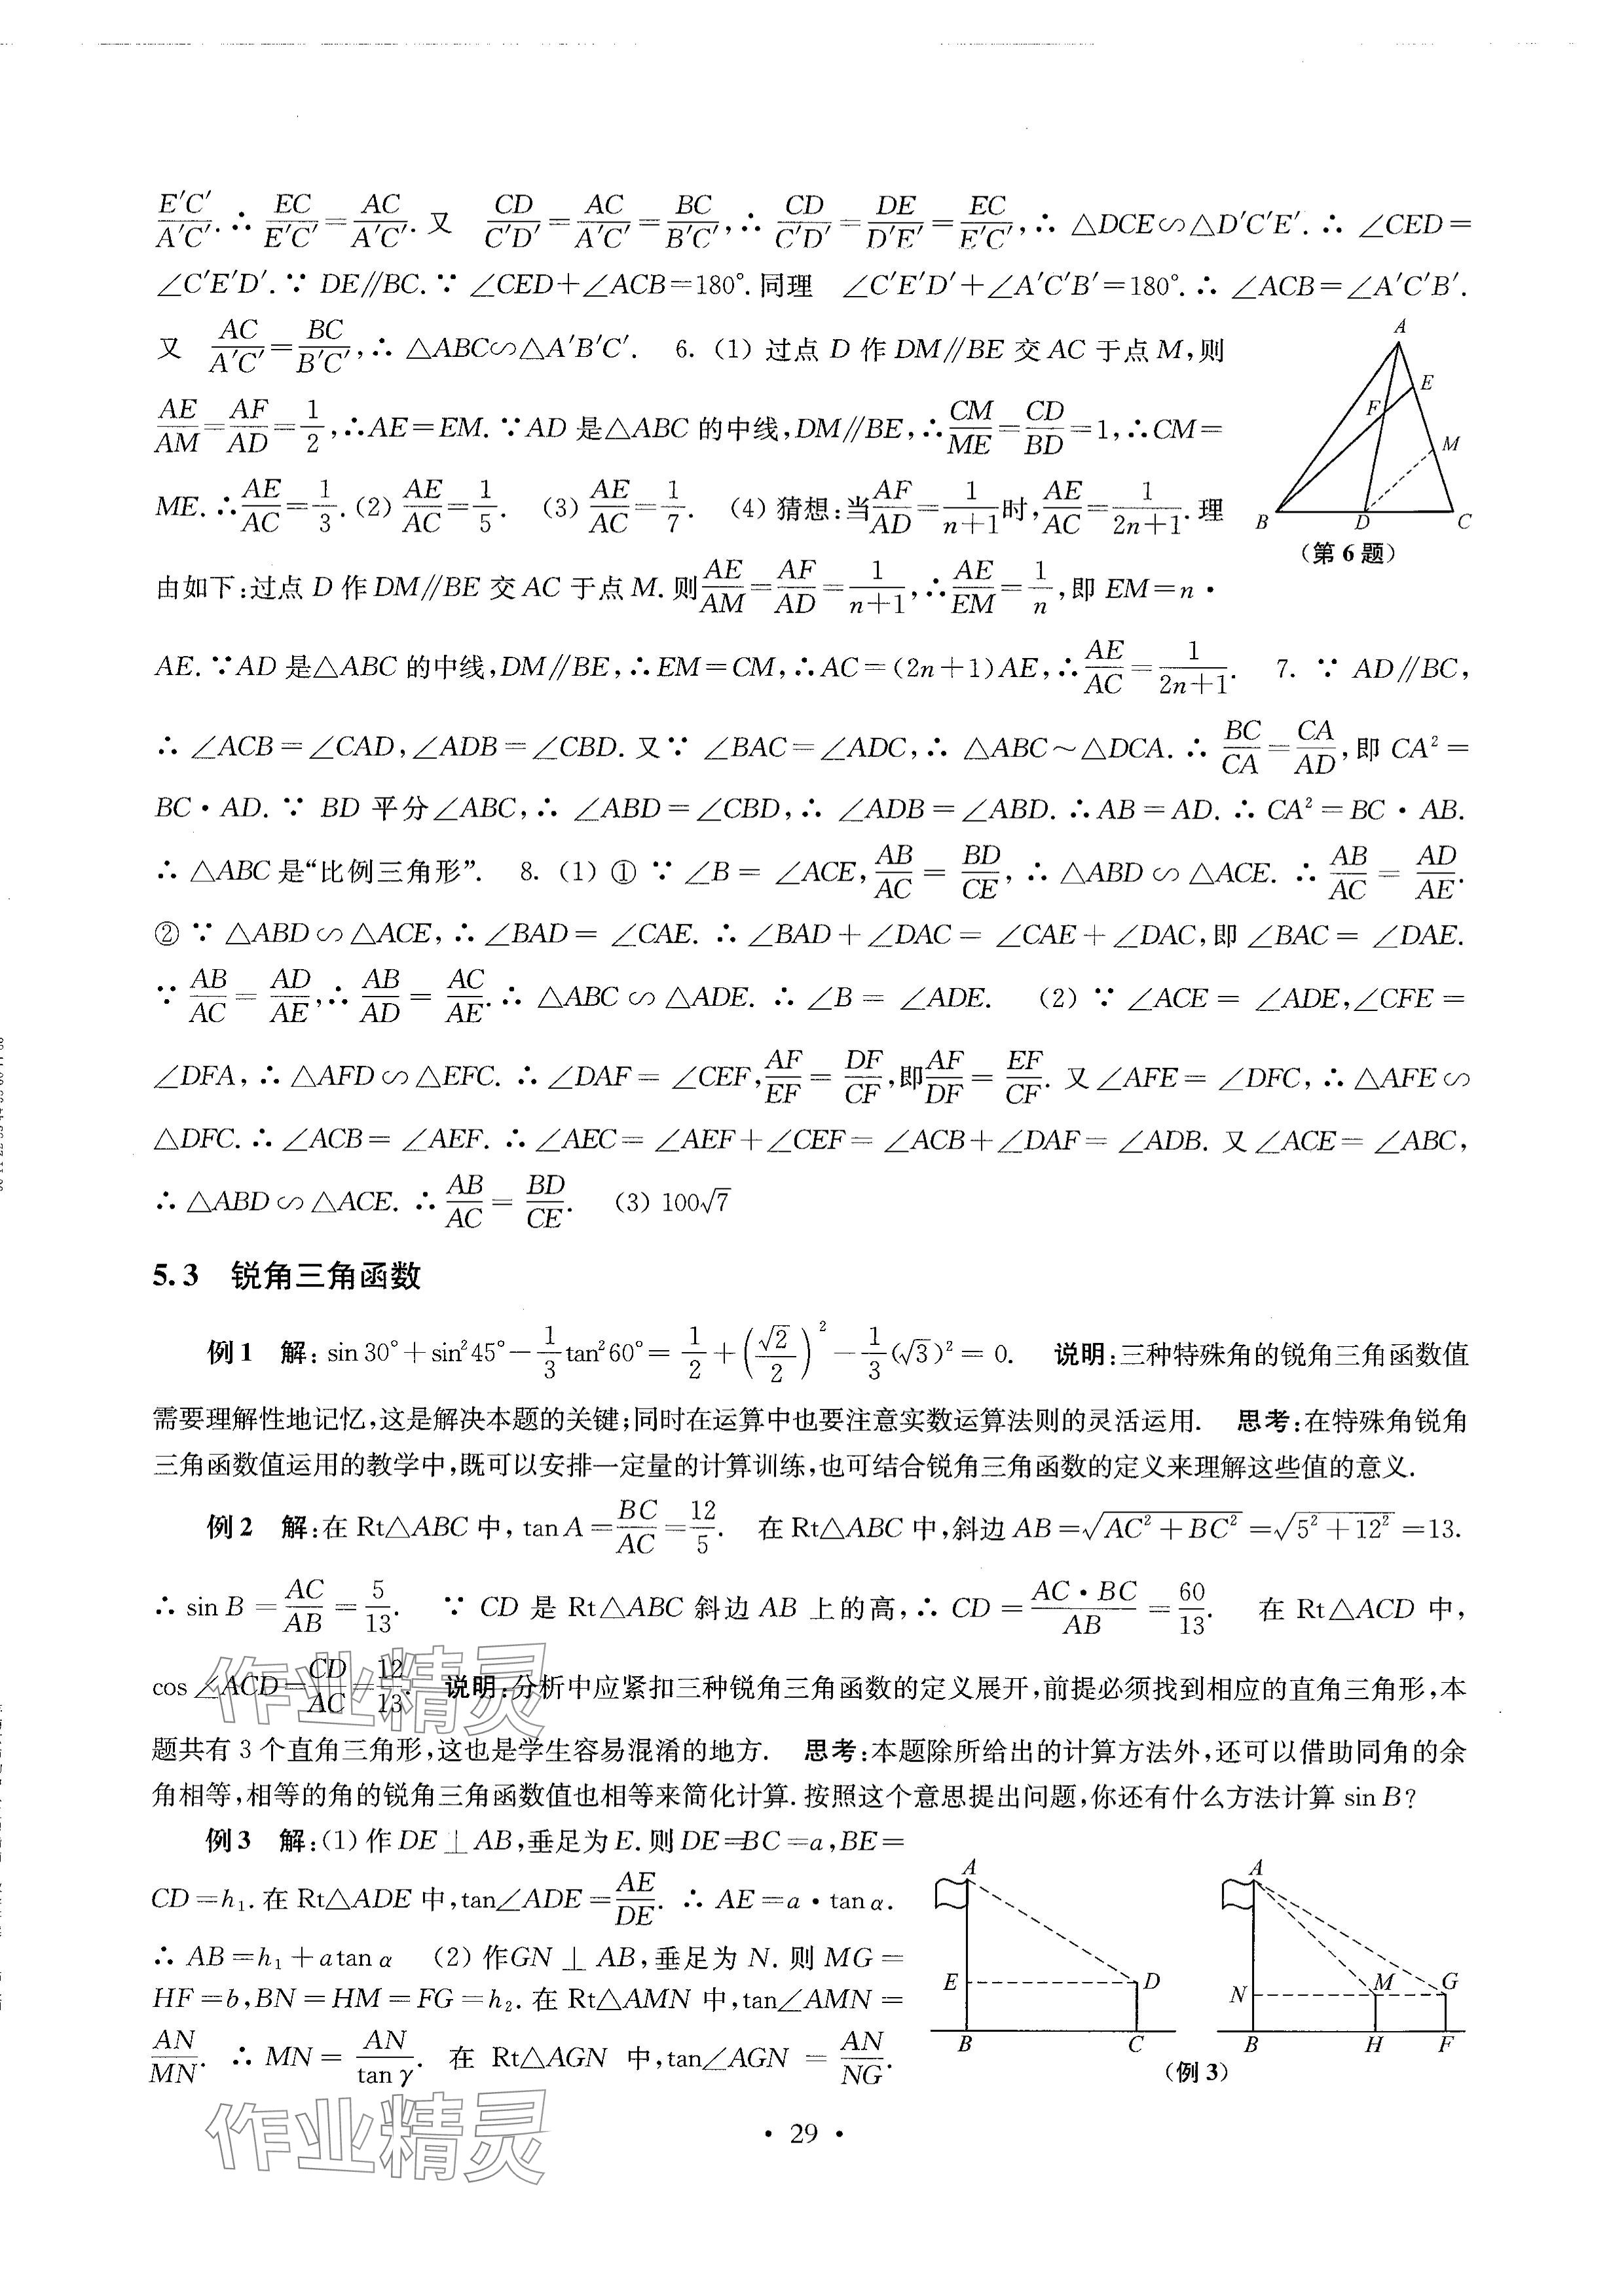 E′C′/A′C′. ∴ EC/E′C′=AC/A′C′. 又 CD/C′D′=AC/A′C′=BC/B′C′, ∴ CD/C′D′=DE/D′E′=EC/E′C′, ∴ △DCE∽△D′C′E′. ∴ ∠CED=
∠C′E′D′. ∵ DE∥BC. ∵ ∠CED+∠ACB=180°. 同理 ∠C′E′D′+∠A′C′B′=180°. ∴ ∠ACB=∠A′C′B′.
又 AC/A′C′=BC/B′C′, ∴ △ABC∽△A′B′C′. 6. (1) 过点 D 作 DM∥BE 交 AC 于点 M, 则
AE/AM=AF/AD=1/2, ∴AE=EM. ∵AD 是△ABC 的中线, DM∥BE, ∴CM/ME=CD/BD=1, ∴CM=
ME. ∴AE/AC=1/3. (2) AE/AC=1/5. (3) AE/AC=1/7. (4) 猜想: 当AF/AD=1/(n+1)时, AE/AC=1/(2n+1). 理
由如下: 过点 D 作 DM∥BE 交 AC 于点 M. 则AE/AM=AF/AD=1/(n+1), ∴AE/EM=1/n, 即 EM=n·
AE. ∵AD 是△ABC 的中线, DM∥BE, ∴EM=CM, ∴AC=(2n+1)AE, ∴AE/AC=1/(2n+1). 7. ∵ AD∥BC,
A
E
F
M
B
D
C
(第 6 题)
∴ ∠ACB=∠CAD, ∠ADB=∠CBD. 又∵ ∠BAC=∠ADC, ∴ △ABC～△DCA. ∴ BC/CA=CA/AD, 即 CA²=
BC·AD. ∵ BD 平分∠ABC, ∴ ∠ABD=∠CBD, ∴ ∠ADB=∠ABD. ∴AB=AD. ∴ CA²=BC·AB.
∴ △ABC 是“比例三角形”. 8. (1) ① ∵ ∠B= ∠ACE, AB/AC=BD/CE, ∴ △ABD∽△ACE. ∴ AB/AC=AD/AE.
② ∵ △ABD∽△ACE, ∴ ∠BAD= ∠CAE. ∴ ∠BAD+∠DAC= ∠CAE+∠DAC, 即 ∠BAC= ∠DAE.
∵ AB/AC=AD/AE, ∴ AB/AD=AC/AE. ∴ △ABC∽△ADE. ∴ ∠B= ∠ADE. (2) ∵ ∠ACE= ∠ADE, ∠CFE=
∠DFA, ∴ △AFD∽△EFC. ∴ ∠DAF= ∠CEF, AF/EF=DF/CF, 即AF/DF=EF/CF. 又 ∠AFE= ∠DFC, ∴ △AFE∽
△DFC. ∴ ∠ACB= ∠AEF. ∴ ∠AEC= ∠AEF+∠CEF= ∠ACB+∠DAF= ∠ADB. 又 ∠ACE= ∠ABC,
∴ △ABD∽△ACE. ∴ AB/AC=BD/CE. (3) 100√7
5.3 锐角三角函数
例1 解: sin30°+sin²45°−1/3tan²60°=1/2+(√2/2)²−1/3(√3)²=0. 说明: 三种特殊角的锐角三角函数值
需要理解性地记忆, 这是解决本题的关键; 同时在运算中也要注意实数运算法则的灵活运用. 思考: 在特殊角锐角
三角函数值运用的教学中, 既可以安排一定量的计算训练, 也可结合锐角三角函数的定义来理解这些值的意义.
例2 解: 在 Rt△ABC 中, tan A=BC/AC=12/5. 在 Rt△ABC 中, 斜边 AB=√(AC²+BC²)=√(5²+12²)=13.
∴ sin B=AC/AB=5/13. ∵ CD 是 Rt△ABC 斜边 AB 上的高, ∴ CD=AC·BC/AB=60/13. 在 Rt△ACD 中,
cos ∠ACD=CD/AC=12/13. 说明: 分析中应紧扣三种锐角三角函数的定义展开, 前提必须找到相应的直角三角形, 本
题共有 3 个直角三角形, 这也是学生容易混淆的地方. 思考: 本题除所给出的计算方法外, 还可以借助同角的余
角相等, 相等的角的锐角三角函数值也相等来简化计算. 按照这个意思提出问题, 你还有什么方法计算 sin B?
例3 解: (1) 作 DE⊥AB, 垂足为 E. 则 DE=BC=a, BE=
CD=h₁. 在 Rt△ADE 中, tan∠ADE=AE/DE. ∴ AE=a·tanα.
∴ AB=h₁+atanα (2) 作GN⊥AB, 垂足为 N. 则 MG=
HF=b, BN=HM=FG=h₂. 在 Rt△AMN 中, tan∠AMN=
AN/MN. ∴ MN=AN/tanγ. 在 Rt△AGN 中, tan∠AGN=AN/NG.
A
E
D
B
C
A
N
M
G
B
H
F
(例 3)
作业精灵
作业精灵
· 29 ·